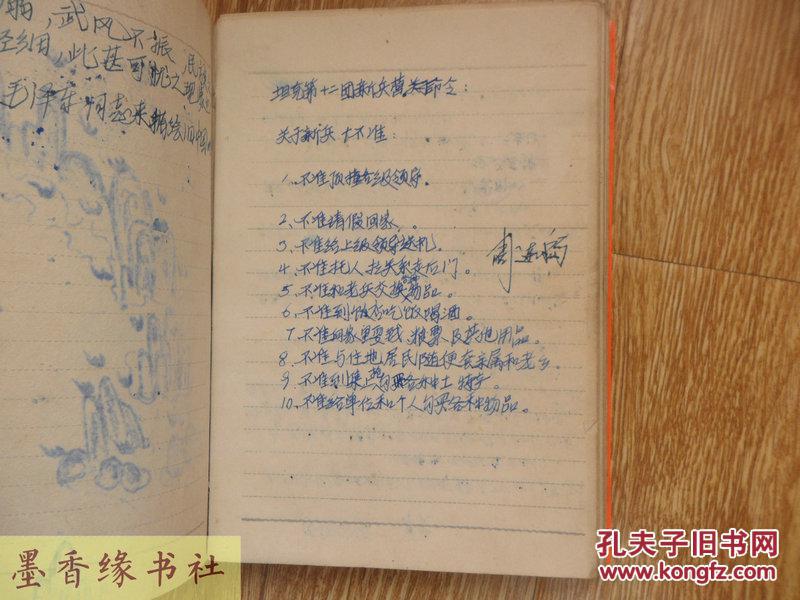 弱,武风不振
此甚可忧之现象
毛泽东同志来
坦克第十二团新兵营关命令:
关于新兵十不准:
1、不准顶撞各级领导。
2、不准请假回家、。
3、不准给上级领导送礼。
4、不准托人拉关系走后门。
5、不准和老兵交换物品。
6、不准到饭店吃饭喝酒。
7、不准向家里要钱,粮票及其他用品。
8、不准与住地居民随便套亲属和老乡。
9、不准到集上购买各种土特产。
10、不准给单位和个人购买各种物品。
墨香缘书社
孔夫子旧书网
www.kongfz.com